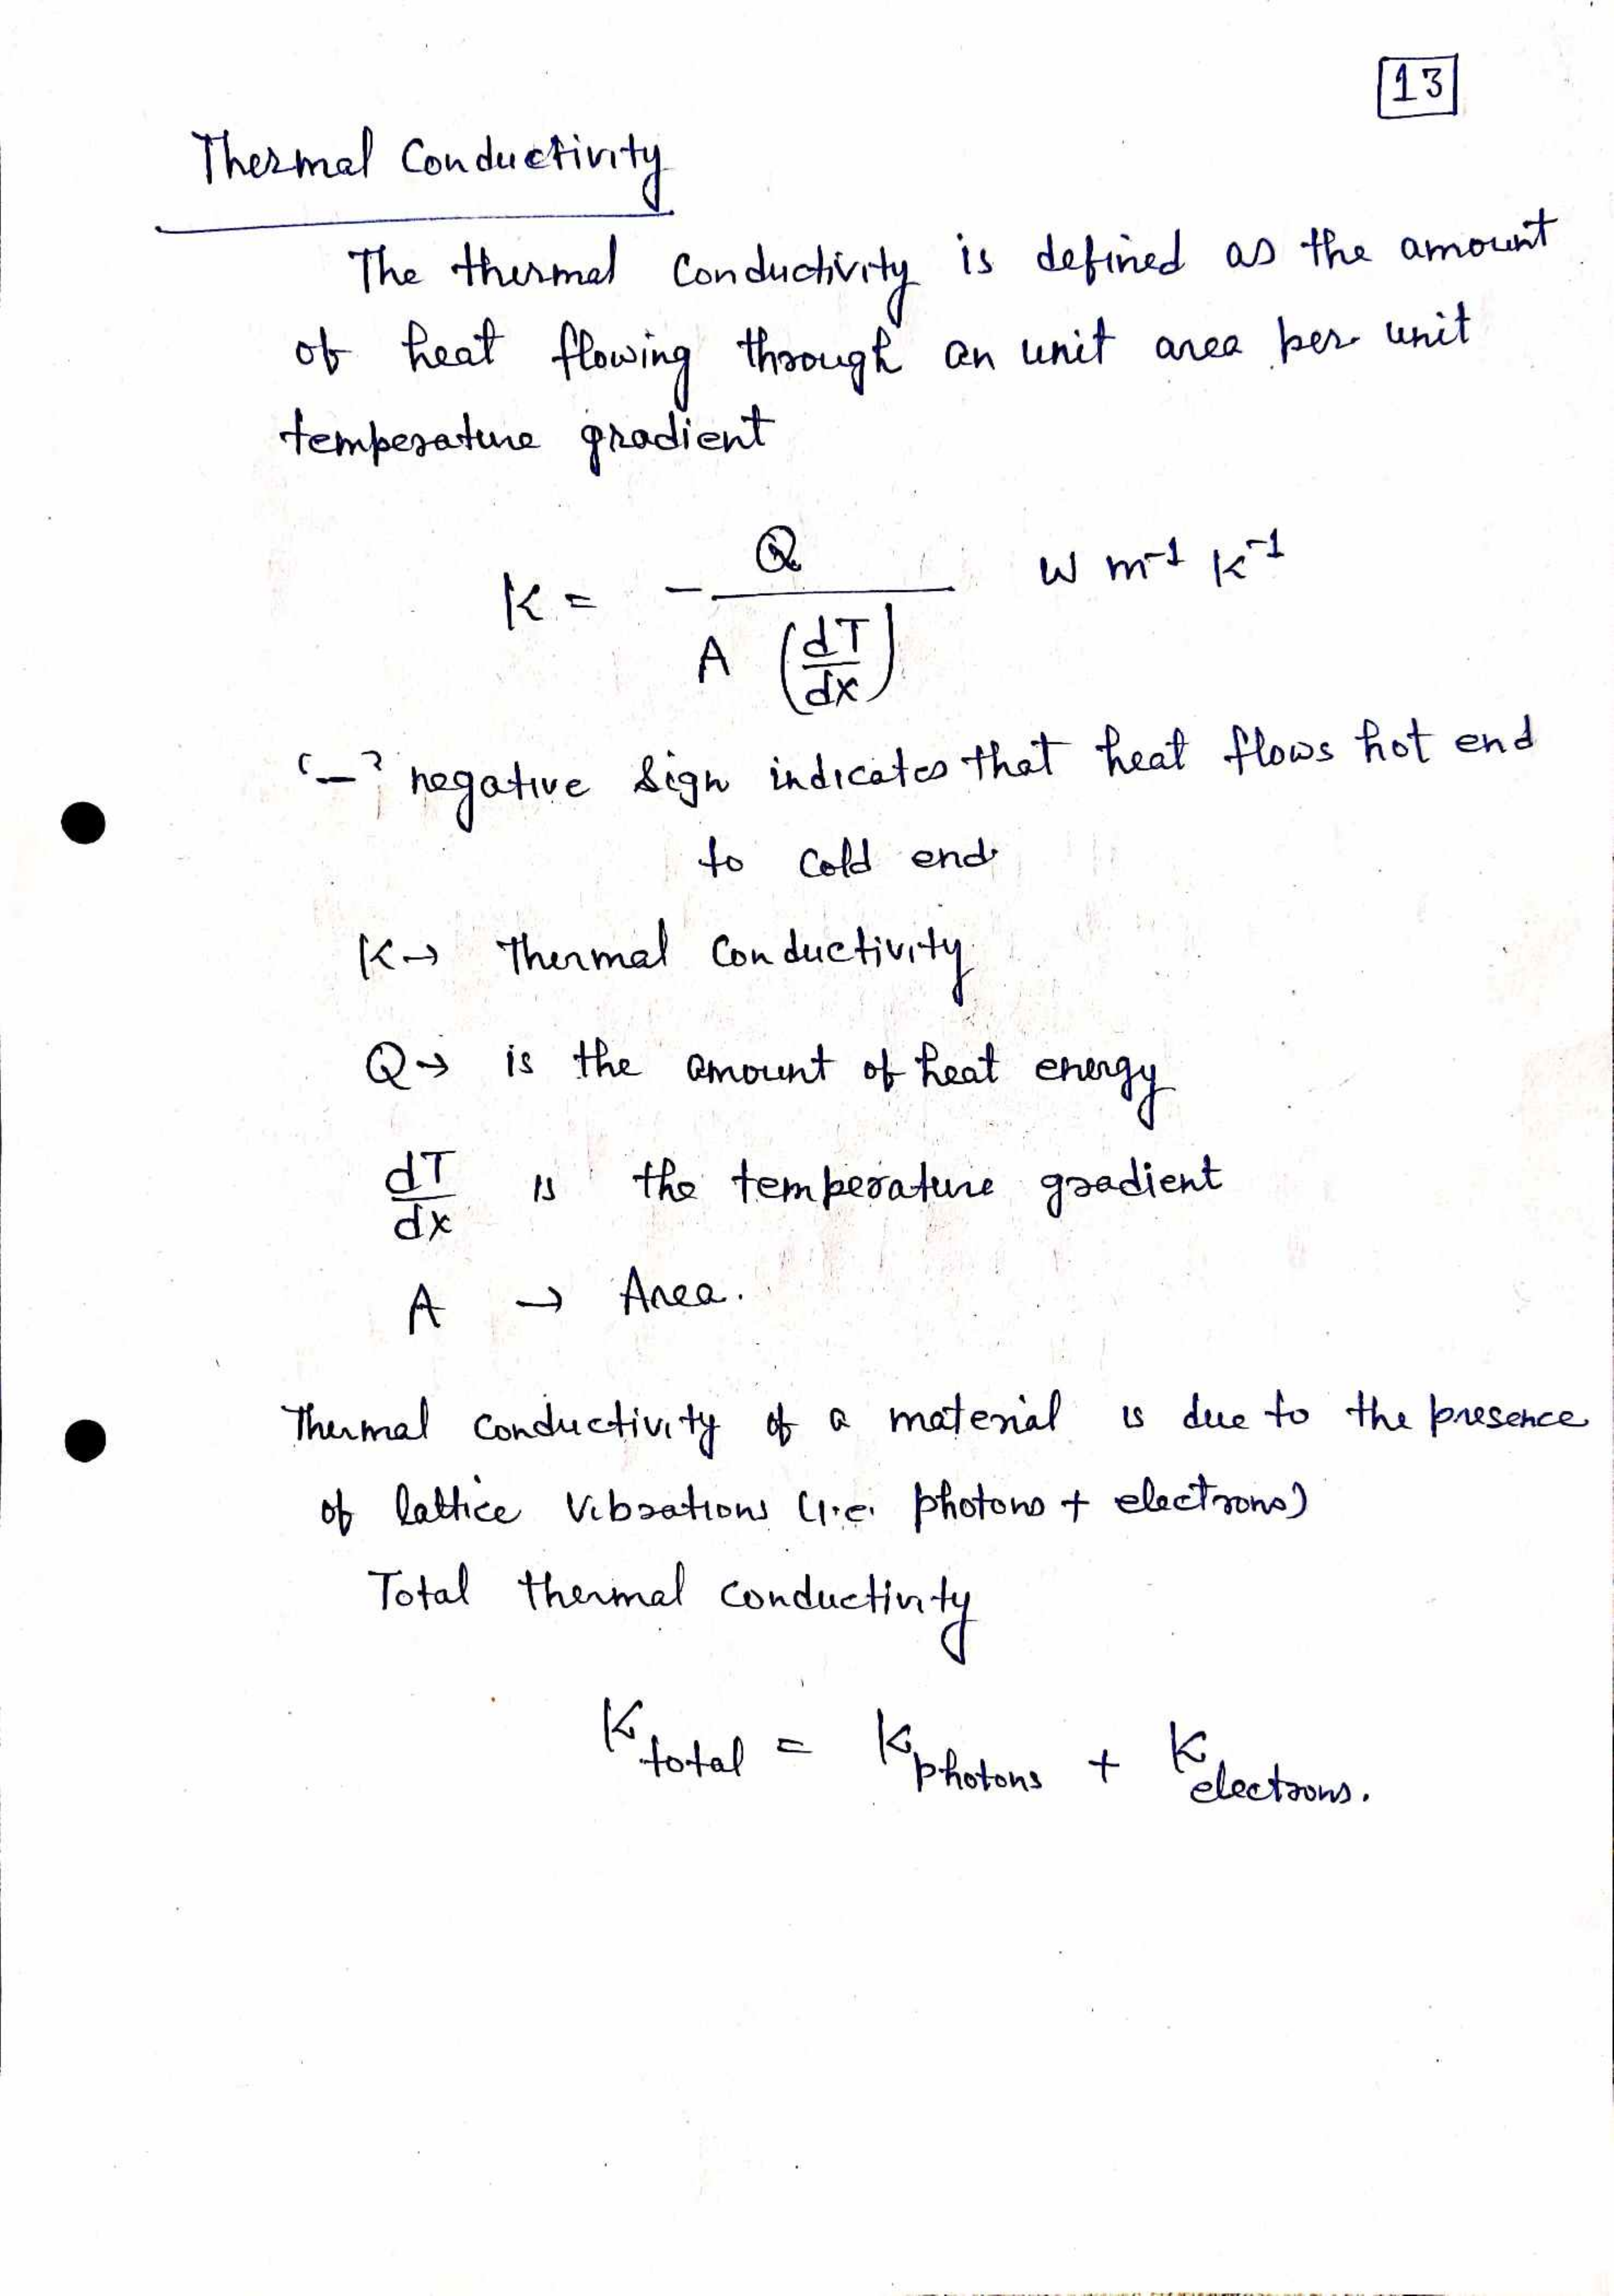 13
Thermal Conductivity
The thermal conductivity is defined as the amount
of heat flowing through an unit area per unit
temperature gradient
K = - Q / A (dT/dx) W m⁻¹ K⁻¹
'-' negative sign indicates that heat flows hot end
to cold end
K → Thermal Conductivity
Q → is the amount of heat energy
dT/dx is the temperature gradient
A → Area.
Thermal conductivity of a material is due to the presence
of lattice vibrations (i.e. photons + electrons)
Total thermal conductivity
K total = K photons + K electrons.